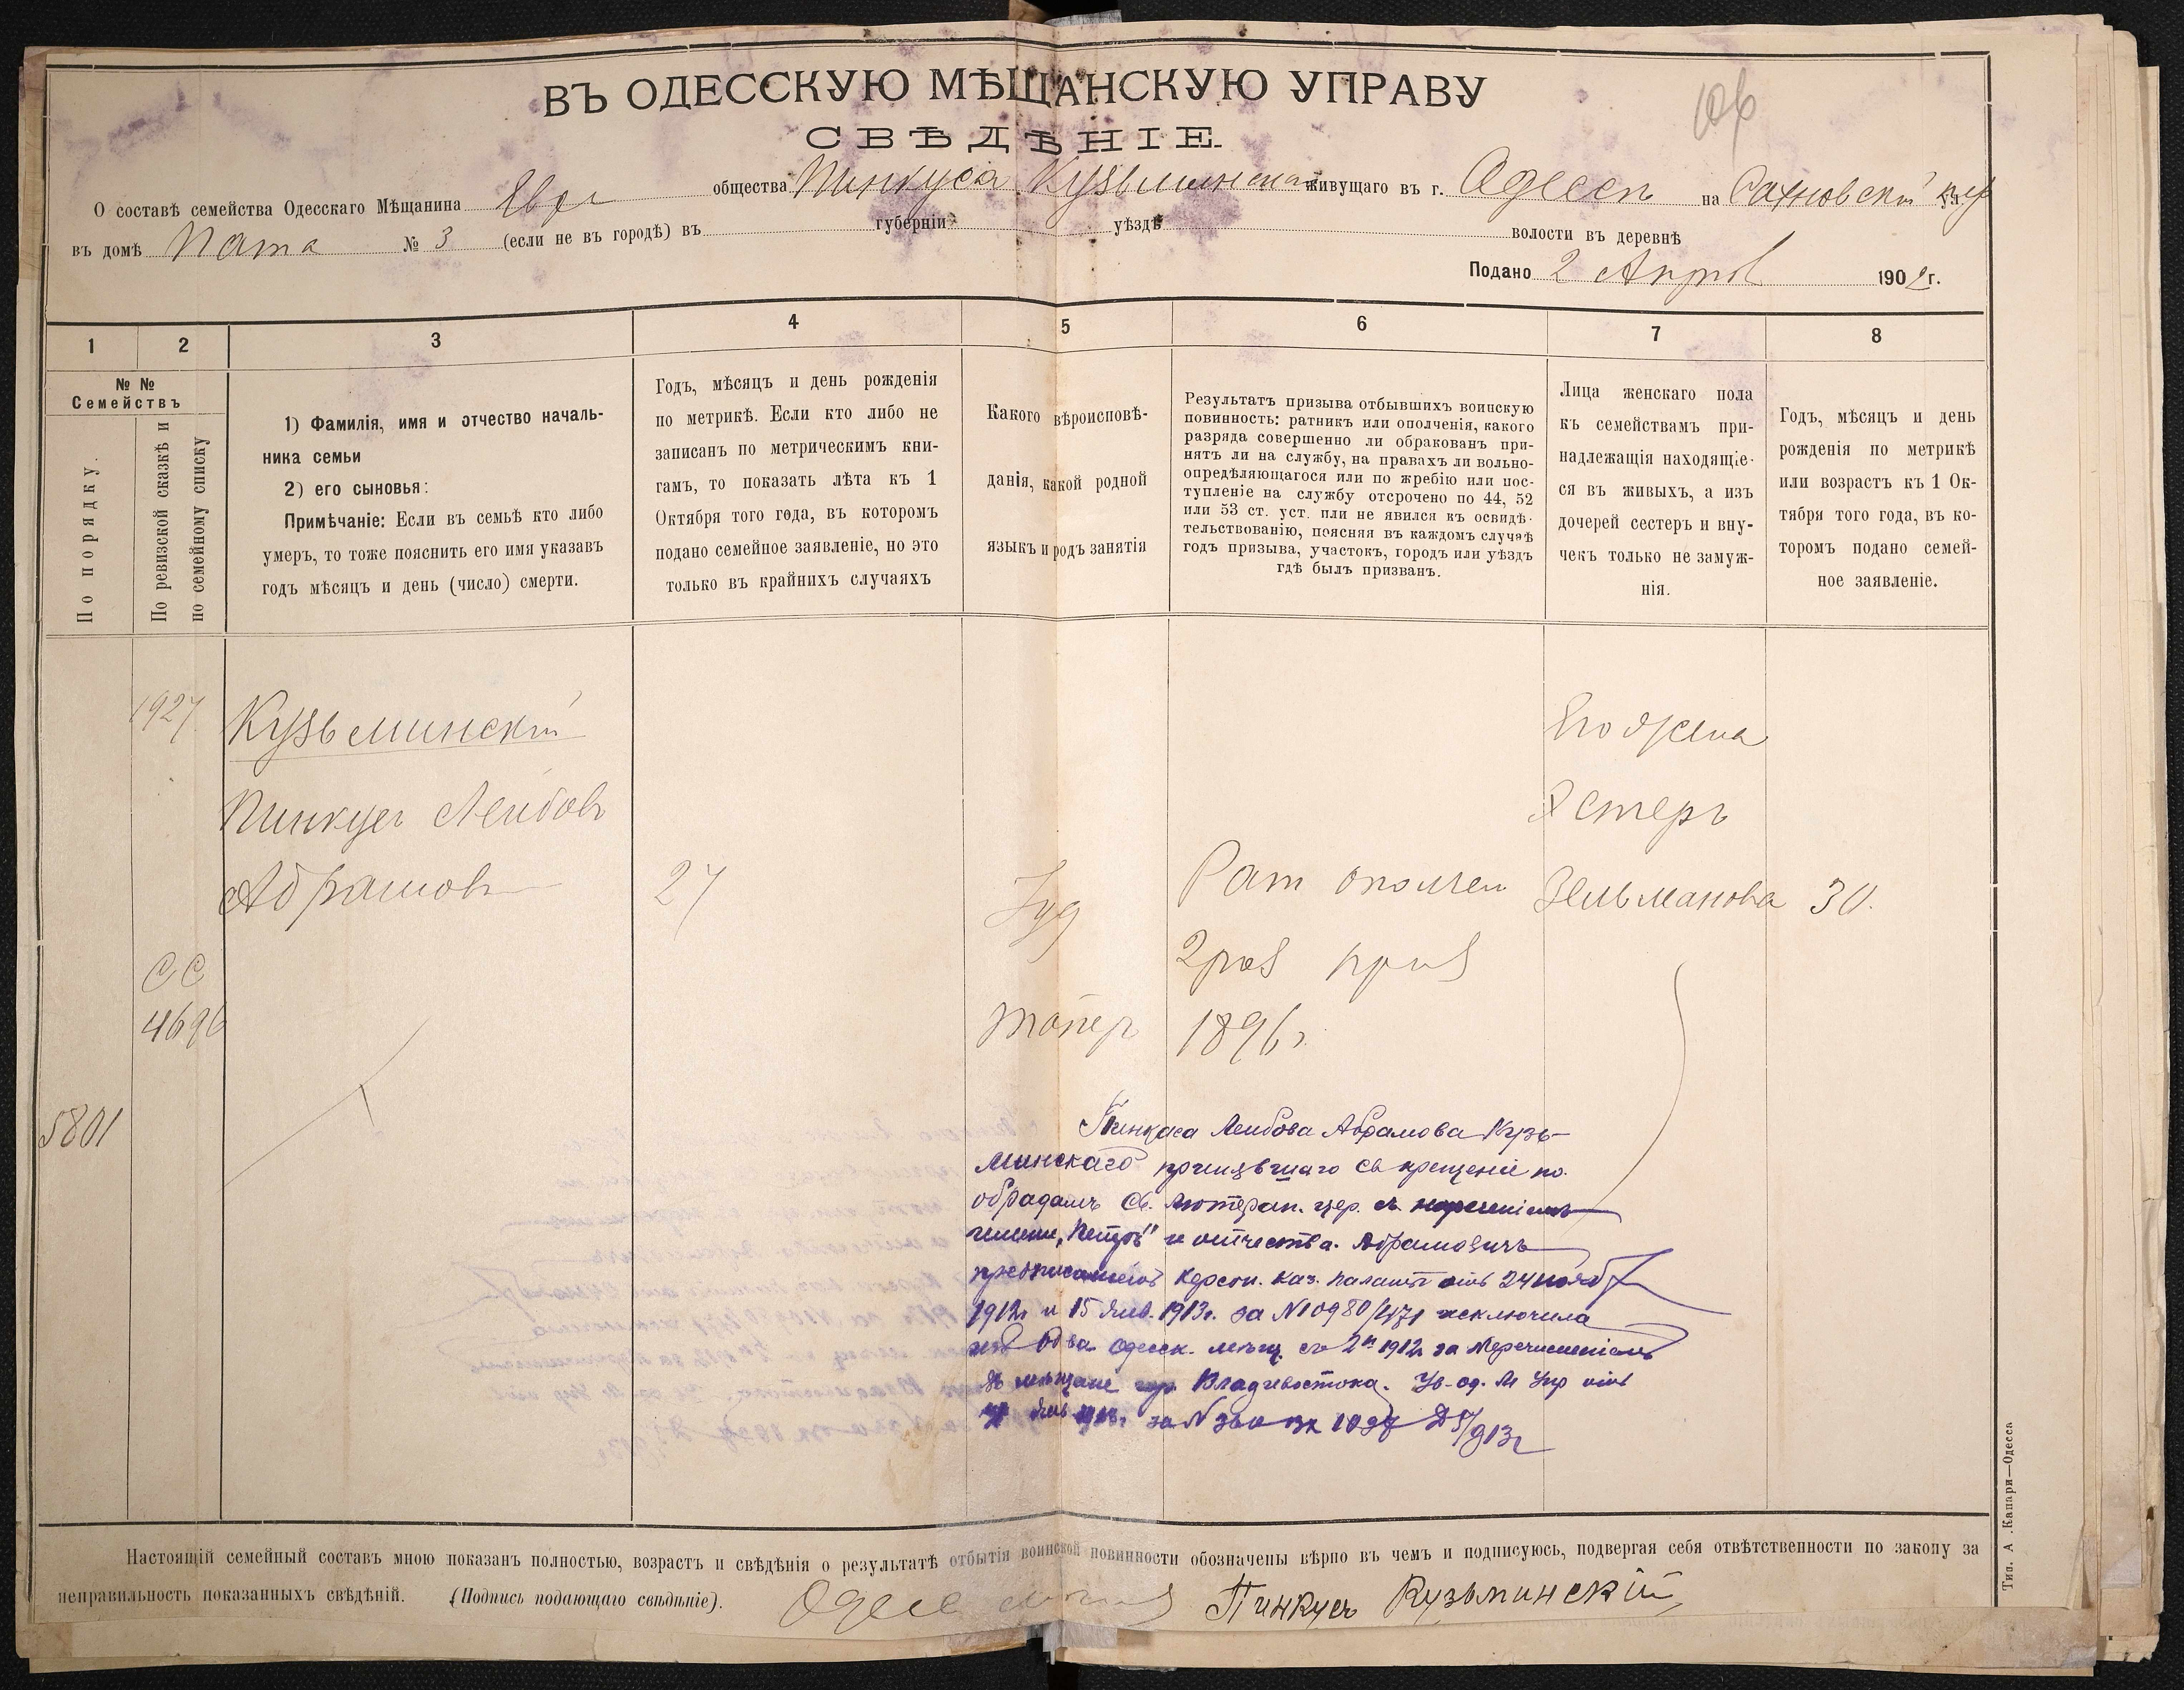 106
ВЪ ОДЕССКУЮ МѢЩАНСКУЮ УПРАВУ
СВѢДѢНІЕ.
О составѣ семейства Одесскаго Мѣщанина Евр общества Пинкуса Кузьминскаго живущаго въ г. Одессѣ на ул.
въ домѣ Пата № 3 (если не въ городѣ) въ губерніи уѣздѣ волости въ деревнѣ
Подано 2 Апрѣл 1902 г.
1 2 3 4 5 6 7 8
№ №
Семействъ
По порядку.
По ревизской сказкѣ и
по семейному списку
1) Фамилія, имя и отчество началь-
ника семьи
2) его сыновья:
Примѣчаніе: Если въ семьѣ кто либо
умеръ, то тоже пояснить его имя указавъ
годъ мѣсяцъ и день (число) смерти.
Годъ, мѣсяцъ и день рожденія
по метрикѣ. Если кто либо не
записанъ по метрическимъ кни-
гамъ, то показать лѣта къ 1
Октября того года, въ которомъ
подано семейное заявленіе, но это
только въ крайнихъ случаяхъ
Какого вѣроисповѣ-
данія, какой родной
языкъ и родъ занятія
Результатъ призыва отбывшихъ воинскую
повинность: ратникъ или ополченія, какого
разряда совершенно ли обракованъ при-
нятъ ли на службу, на правахъ ли вольно-
опредѣляющагося или по жребію или пос-
тупленіе на службу отсрочено по 44, 52
или 53 ст. уст. пли не явился къ освидѣ-
тельствованію, поясняя въ каждомъ случаѣ
годъ призыва, участокъ, городъ или уѣздъ
гдѣ былъ призванъ.
Лица женскаго пола
къ семействамъ при-
надлежащія находящіе-
ся въ живыхъ, а изъ
дочерей сестеръ и вну-
чекъ только не замуж-
нія.
Годъ, мѣсяцъ и день
рожденія по метрикѣ
или возрастъ къ 1 Ок-
тября того года, въ ко-
торомъ подано семей-
ное заявленіе.
1927 Кузьминскій Его жена
Пинкусъ Лейбовъ Эстеръ
Абрамовъ 27 Іуд Рат ополчен Зельманова 30.
СС 2 раз приз
4696 1896 г.
5801
Пинкаса Лейбова Абрамова Кузь-
минскаго принявшаго св крещеніе по
обрядамъ Ев. Лютеран. цер. съ нареченіемъ
имени „Петръ" и отчества Абрамовичъ
предписаніемъ Херсон. Каз. Палаты отъ 24 нояб
1912 г. и 15 Янв. 1913 г. за № исключила
изъ Об ва Одесск. мѣщ. съ 1912 г за перечисленіемъ
въ мѣщане гор. Владивостока. Ув-од. М Упр отъ
за № 1927 913 г
Настоящій семейный составъ мною показанъ полностью, возрастъ и свѣдѣнія о результатѣ отбытія воинской повинности обозначены вѣрно въ чемъ и подписуюсь, подвергая себя отвѣтственности по закону за
неправильность показанныхъ свѣдѣній. (Подпись подающаго свѣдѣніе). Пинкусъ Кузьминскій
Тип. А .Капари—Одесса